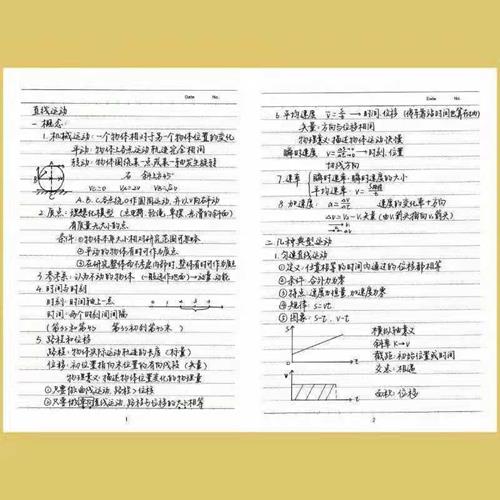 Date No.
直线运动
一 概念:
1. 机械运动: 一个物体相对于另一个物体位置的变化
平动: 物体上各点运动轨迹完全相同
转动: 物体围绕某一点或某一轴发生旋转
A、B、C、O点绕O作圆周运动, 并以V向右平动
2. 质点: 理想化模型 (点电荷, 轻绳, 单摆, 光滑的斜面)
有质量无大小的点
条件: ①物体本身大小相对研究范围可忽略
②平动的物体有时可作为质点
③在研究整体而不考虑内部时, 整体有时可作为质点
3. 参考系: 认为不动的物体
4. 时间与时刻
时刻: 时间轴上一点
时间: 两个时刻间间隔
5. 路程和位移
路程: 物体实际运动轨迹的长度 (标量)
位移: 初位置指向末位置的有向线段 (矢量)
物理意义: 描述物体位置变化的物理量
①只要做曲线运动, 路程>位移
②只要做单向直线运动, 路程与位移的大小相等
1
Date No.
6. 平均速度
矢量: 方向与位移相同
物理意义: 描述物体运动快慢
瞬时速度 时刻, 位置
切线方向
7. 速率 瞬时速率: 瞬时速度的大小
平均速率:
8. 加速度: 速度的变化率+方向
二 几种典型运动
1. 匀速直线运动
①定义: 任意相等的时间内通过的位移都相等
②条件: 合外力为零
③特点: 速度为恒量, 加速度为零
④规律: s=vt
⑤图象: s-t, v-t
s
t
斜率 K→V
截距: 初始位置或时间
交点: 相遇
V
t
面积: 位移
2